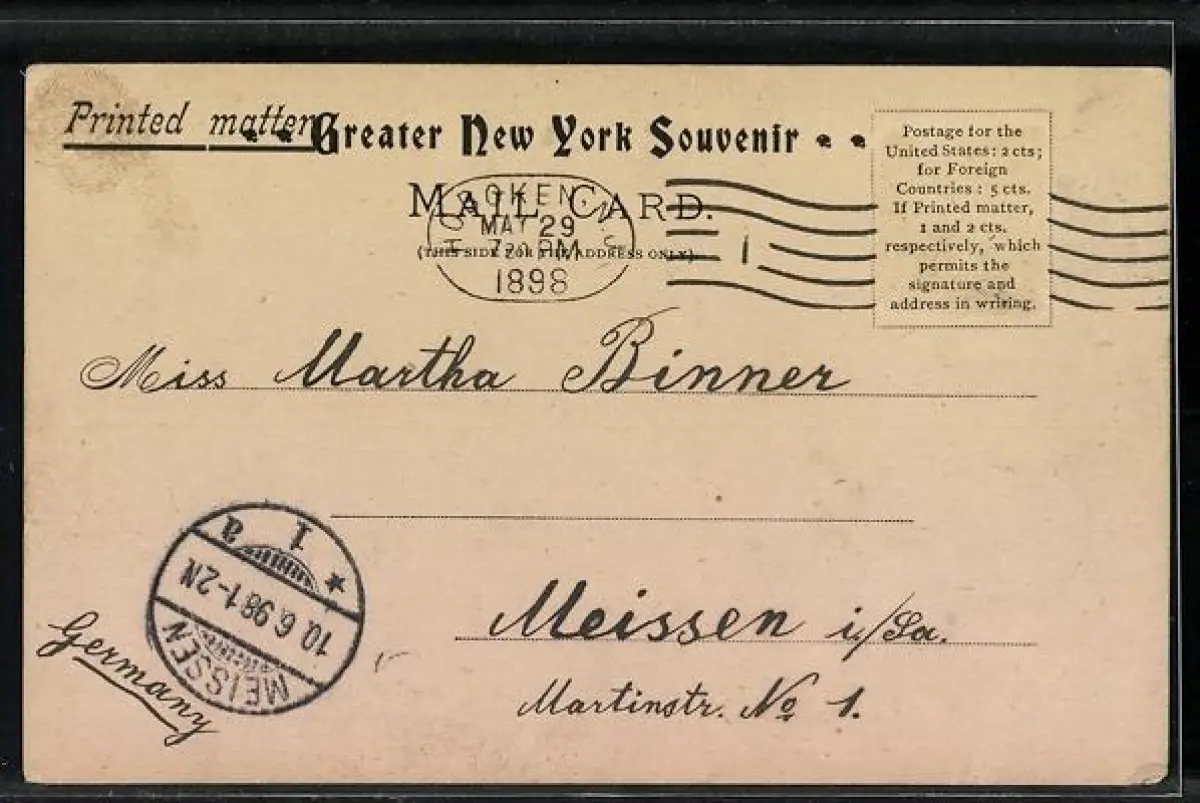 Printed matter
Greater New York Souvenir
MAIL CARD.
(THIS SIDE FOR THE ADDRESS ONLY)
HOBOKEN, N.
MAY 29
1898
1
Postage for the
United States: 2 cts;
for Foreign
Countries: 5 cts.
If Printed matter,
1 and 2 cts.
respectively, which
permits the
signature and
address in writing.
Miss Martha Binner
Meissen i/Sa.
Martinstr. No 1.
Germany
MEISSEN
10.6.98 1-2N
1 a